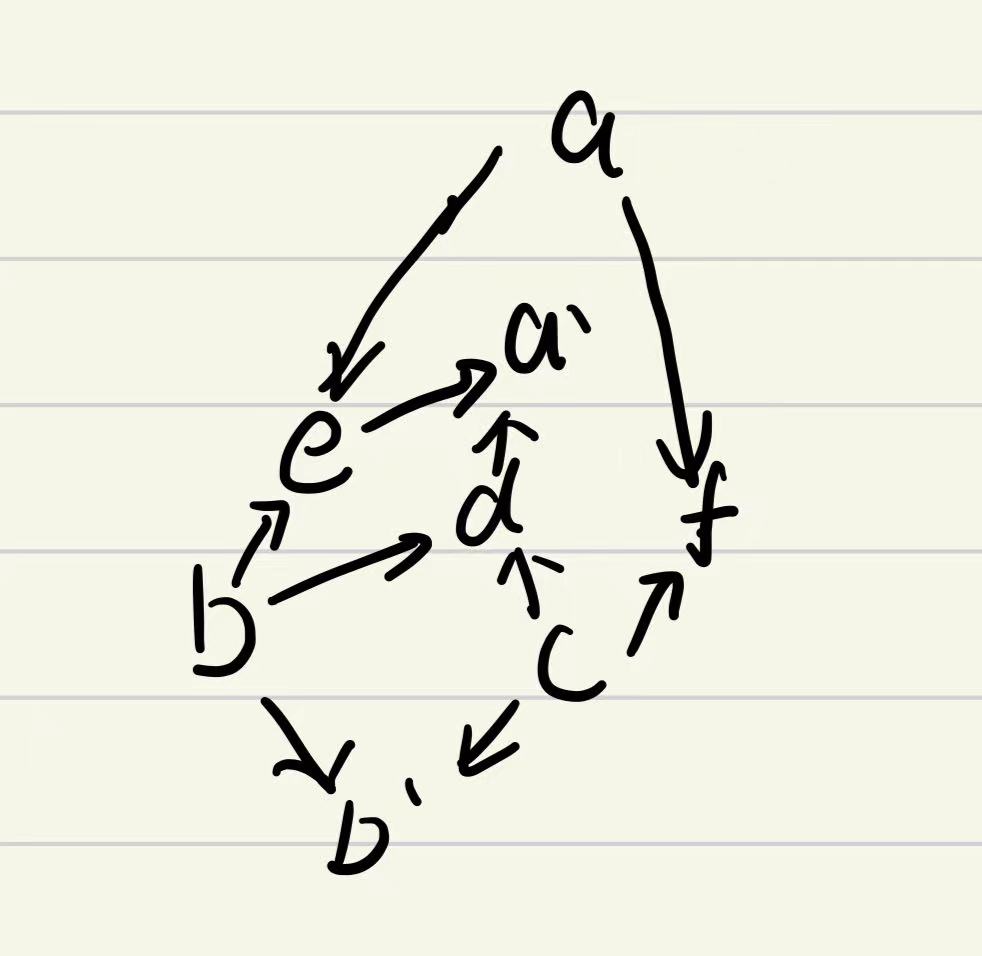 a
a`
e
d
f
b
c
b`